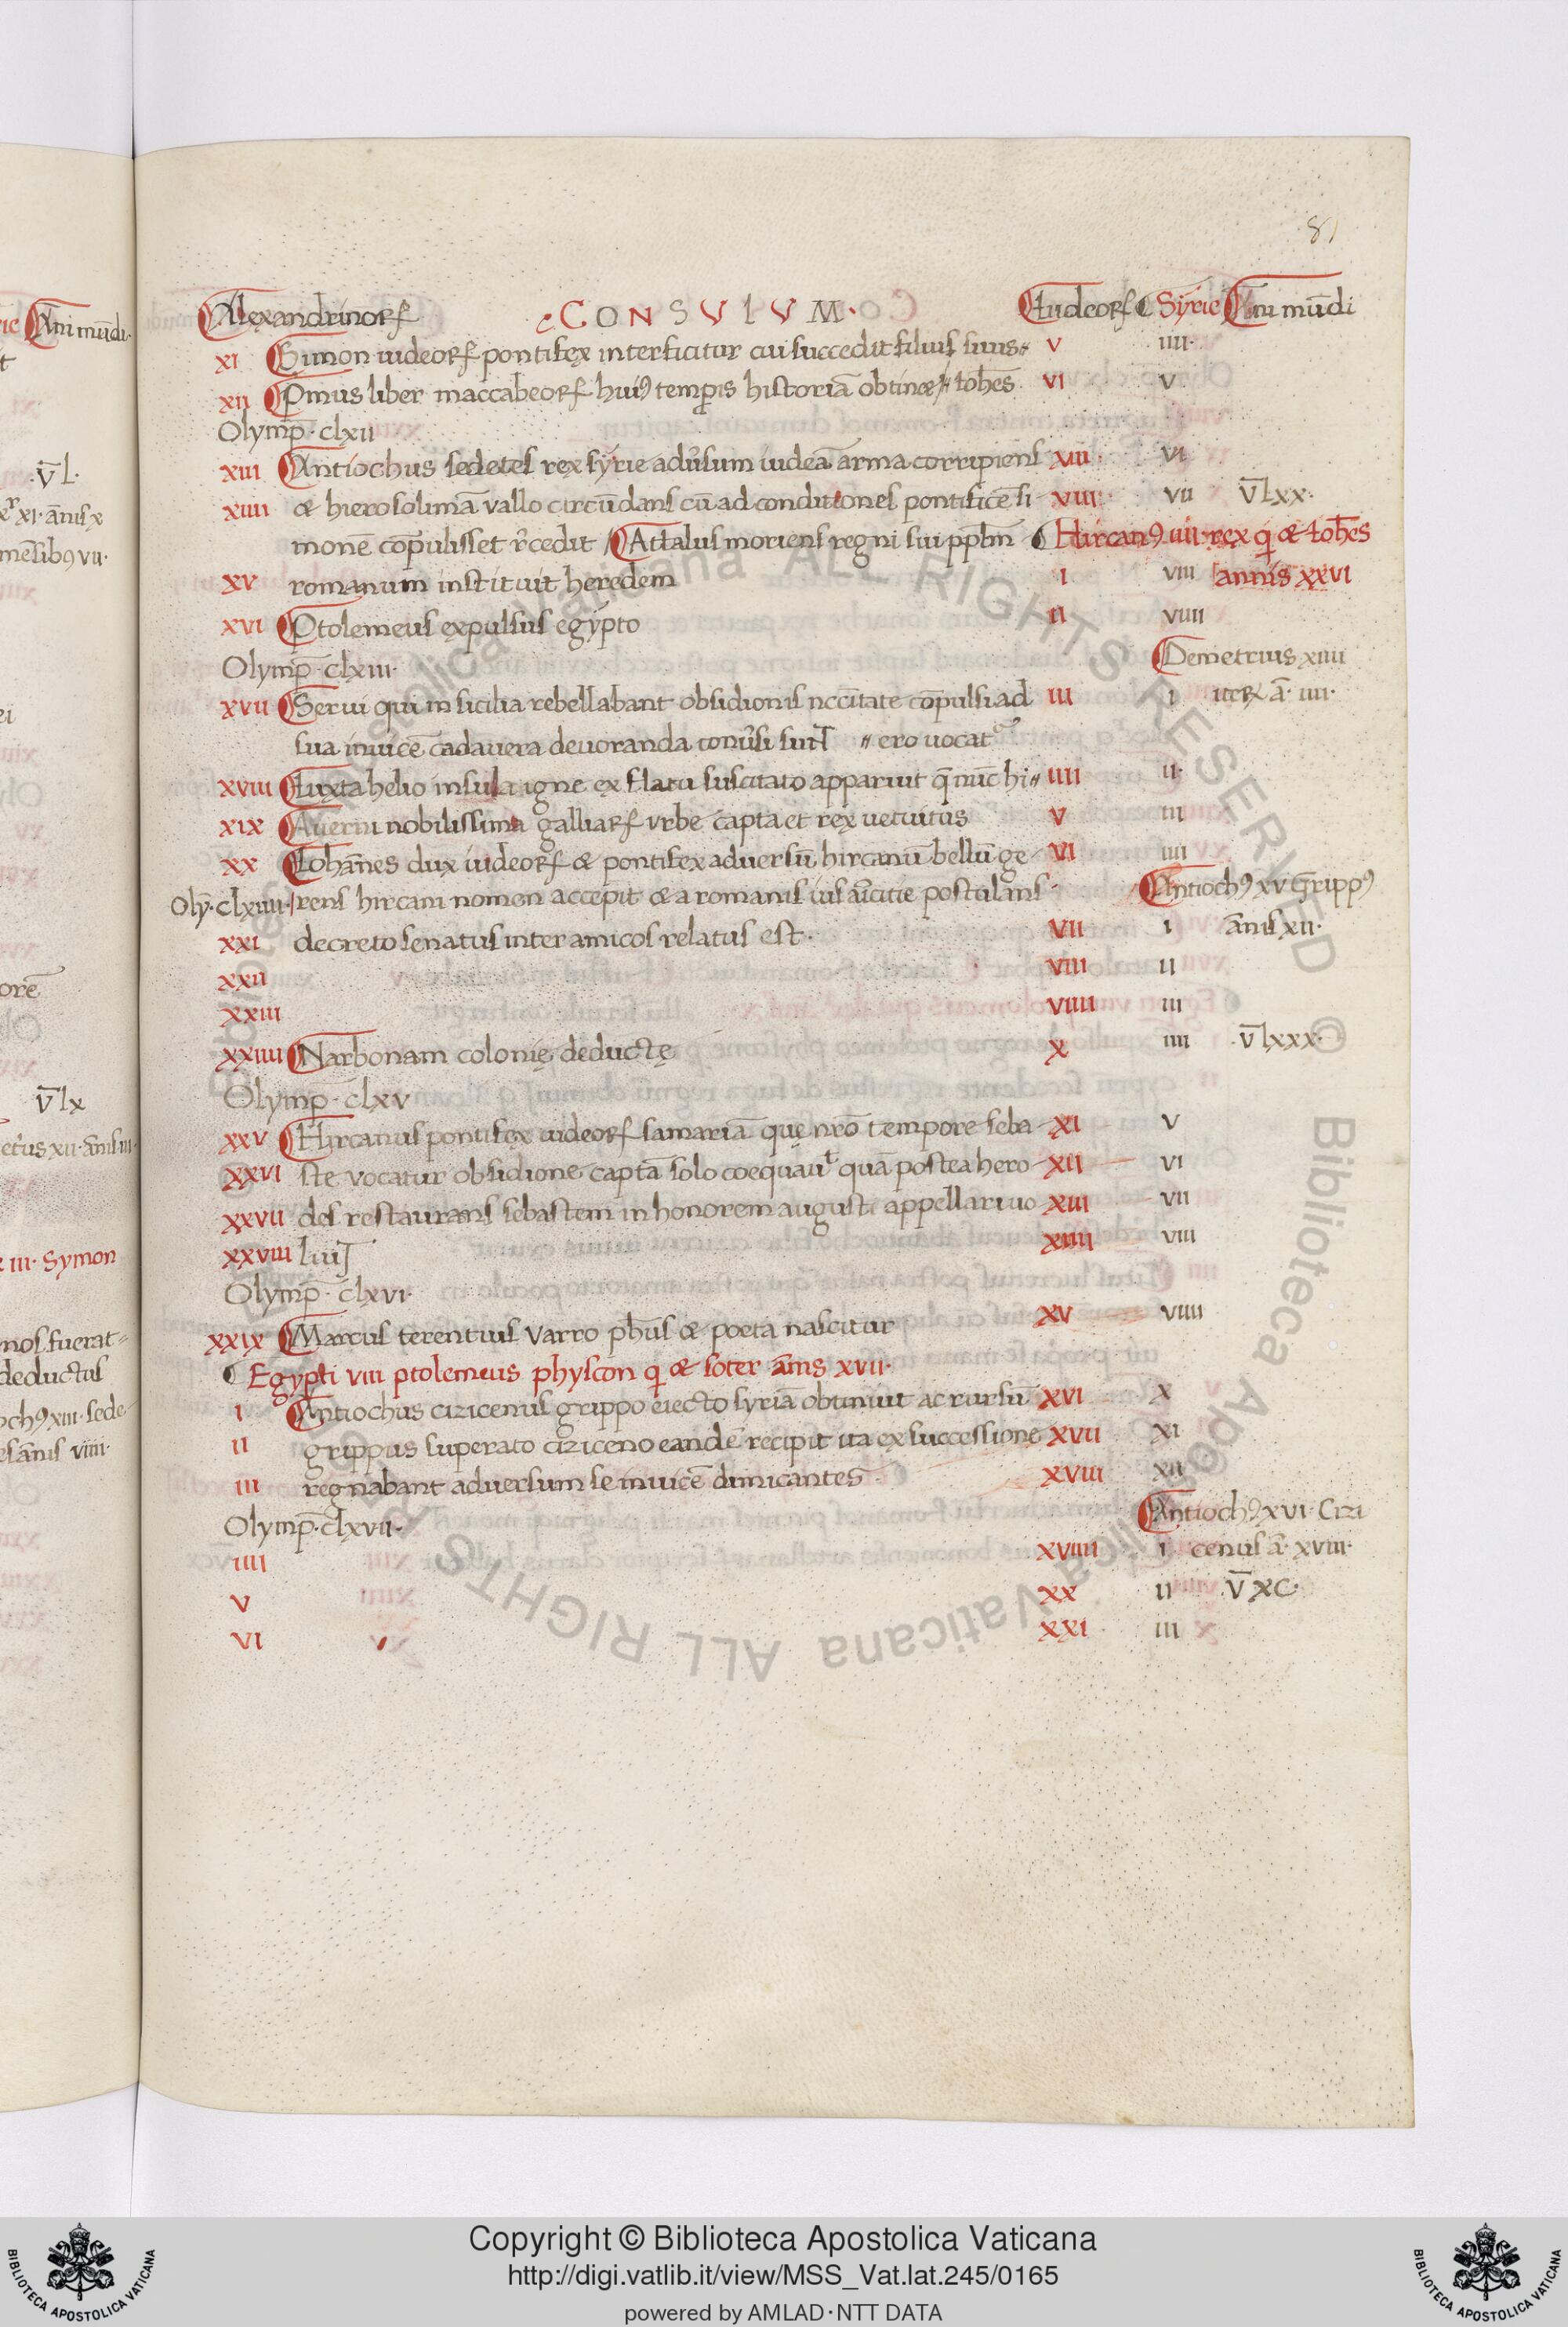 81
Alexandrinoꝝ CONSVLVM· Iudeoꝝ Syrie Ani mūdi
xi Simon iudeoꝝ pontifex interficitur cui succedit filius suus v iiii·
xii Pmus liber maccabeoꝝ huiꝰ temꝑis historiā obtinæ // Ioh̄es vi v
Olymp̄· clxii
xiii Antiochus sedetes rex syrie adūsum iudeā arma corripiens viii· vi
xiiii æ hierosolimā vallo circūdans cū ad conditiones pontificē si- viii vii v̄lxx·
monē cōpulisset r̄cedit / Attalus moriens regni sui ppl̄m Hircanꝰ iiii rex q̇ æ Ioh̄es
xv romanum instituit heredem i viii annis xxvi
xvi Ptolemeus expulsus egypto ii viiii
Olymp̄· clxiii· Demetrius xiiii
xvii Serui qui in sicilia rebellabant obsidionis nccītate cōpulsi ad iii i iteꝝ ā· iiii·
sua inuicē cadauera deuoranda conūsi sunt // ero uocat
xviii Iuxta helio insula igne ex flatu suscitato apparuit q̄ nūc hi// iiii ii·
xix Auerni nobilissima galliaꝝ vrbe capta et rex uetuitus v iii
xx Iohānes dux iudeoꝝ æ pontifex aduersū hircanū bellū ge- vi iiii
Oly· clxiiii· rens hircani nomen accepit æ a romanis ius amīcitie postulans Antiochꝰ xv Grippꝰ
xxi decreto senatus inter amicos relatus est· vii i ānis xii·
xxii viii ii
xxiii viiii iii
xxiiii Narbonam colonię deductę x iiii ·v̄lxxx·
Olymp̄· clxv
xxv Hircanus pontifex iudeoꝝ samariā quę nrō tempore seba- xi v
xxvi ste vocatur obsidione captā solo coequauit quā postea hero- xii vi
xxvii des restaurans sebastem in honorem augusti appellari uo- xiii vii
xxviii luit xiiii viii
Olymp̄· clxvi·
xxix Marcus terentius varro ph̄us æ poeta nascitur xv viiii
Egypti viii ptolemeus physcon q̇ æ soter ānis xvii·
i Antiochus cizicenus grippo eiecto syriā obtinuit ac rursū xvi x
ii grippus superato ciziceno eandē recipit ita ex successione xvii xi
iii regnabant aduersum se inuicē dimicantes xviii xii
Olymp̄· clxvii· Antiochꝰ xvi· Cizi
iiii xviiii i cenus ā· xviii·
v xx ii v̄xc·
vi xxi iii
Copyright © Biblioteca Apostolica Vaticana
http://digi.vatlib.it/view/MSS_Vat.lat.245/0165
powered by AMLAD·NTT DATA
BIBLIOTECA APOSTOLICA VATICANA
BIBLIOTECA APOSTOLICA VATICANA